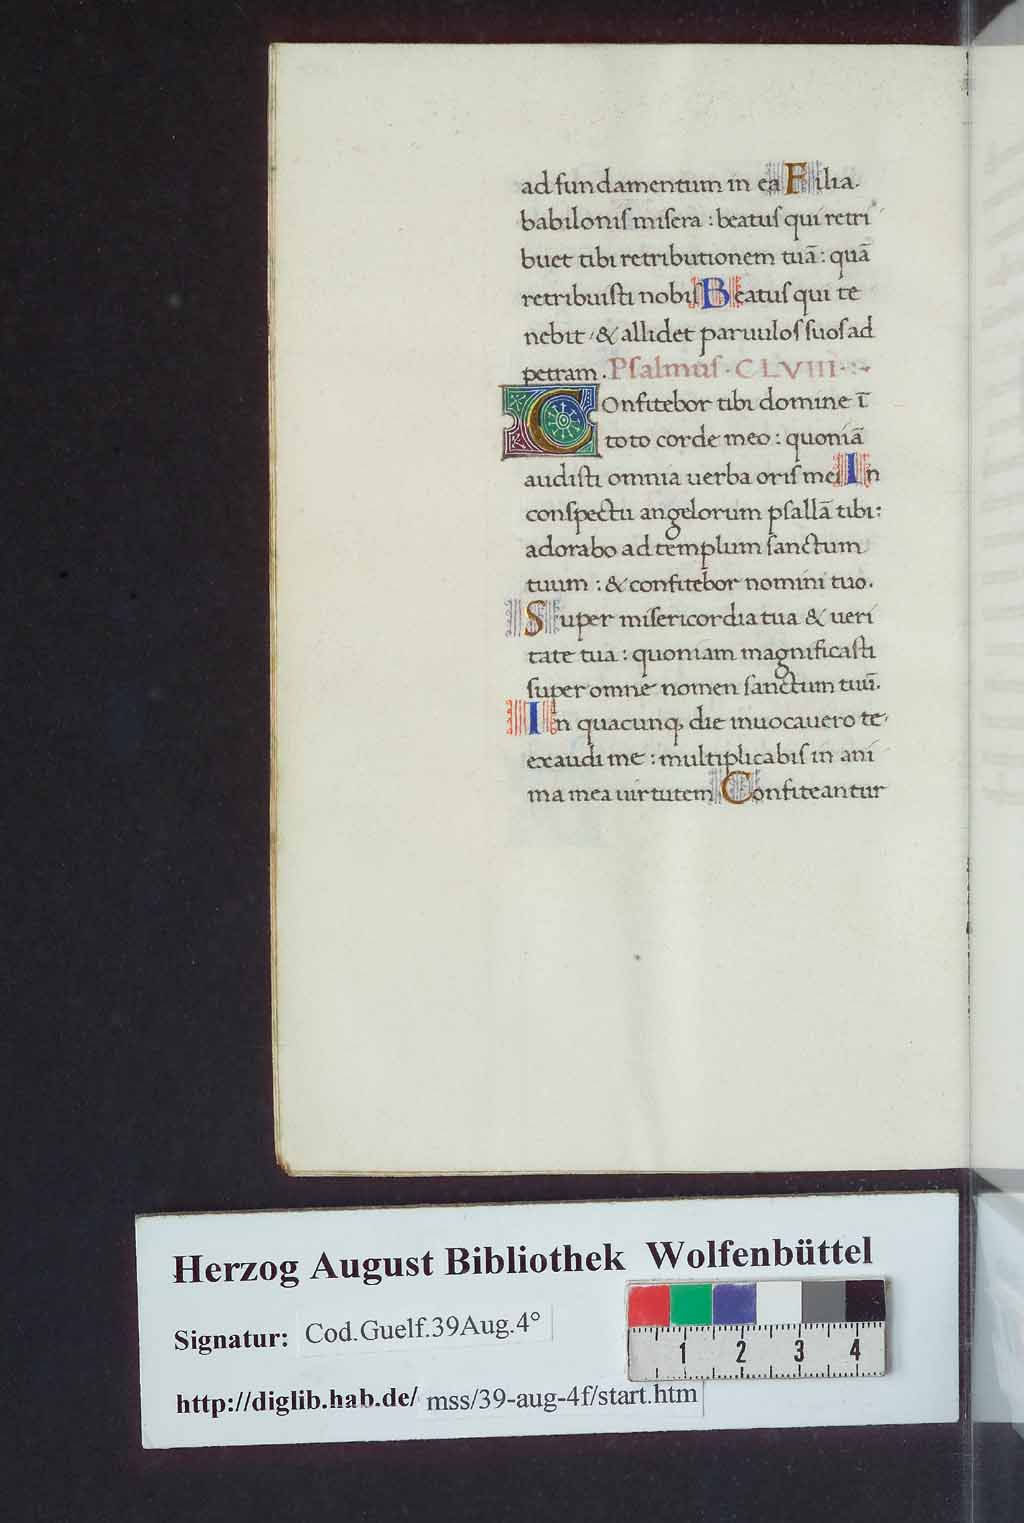 ad fundamentum in ea Filia.
babilonis misera : beatus qui retri
buet tibi retributionem tuā : quā
retribuisti nobis Beatus qui te
nebit & allidet paruulos suos ad
petram . Psalmus · CLVIII ·
Confitebor tibi domine ī
toto corde meo : quoniā
audisti omnia uerba oris mei In
conspectu angelorum psallā tibi :
adorabo ad templum sanctum
tuum : & confitebor nomini tuo .
Super misericordia tua & ueri
tate tua : quoniam magnificasti
super omne nomen sanctum tuū .
In quacunq, die inuocauero te
exaudi me : multiplicabis in ani
ma mea uirtutem Confiteantur
Herzog August Bibliothek Wolfenbüttel
Signatur: Cod.Guelf.39Aug.4°
1 2 3 4
http://diglib.hab.de/ mss/39-aug-4f/start.htm